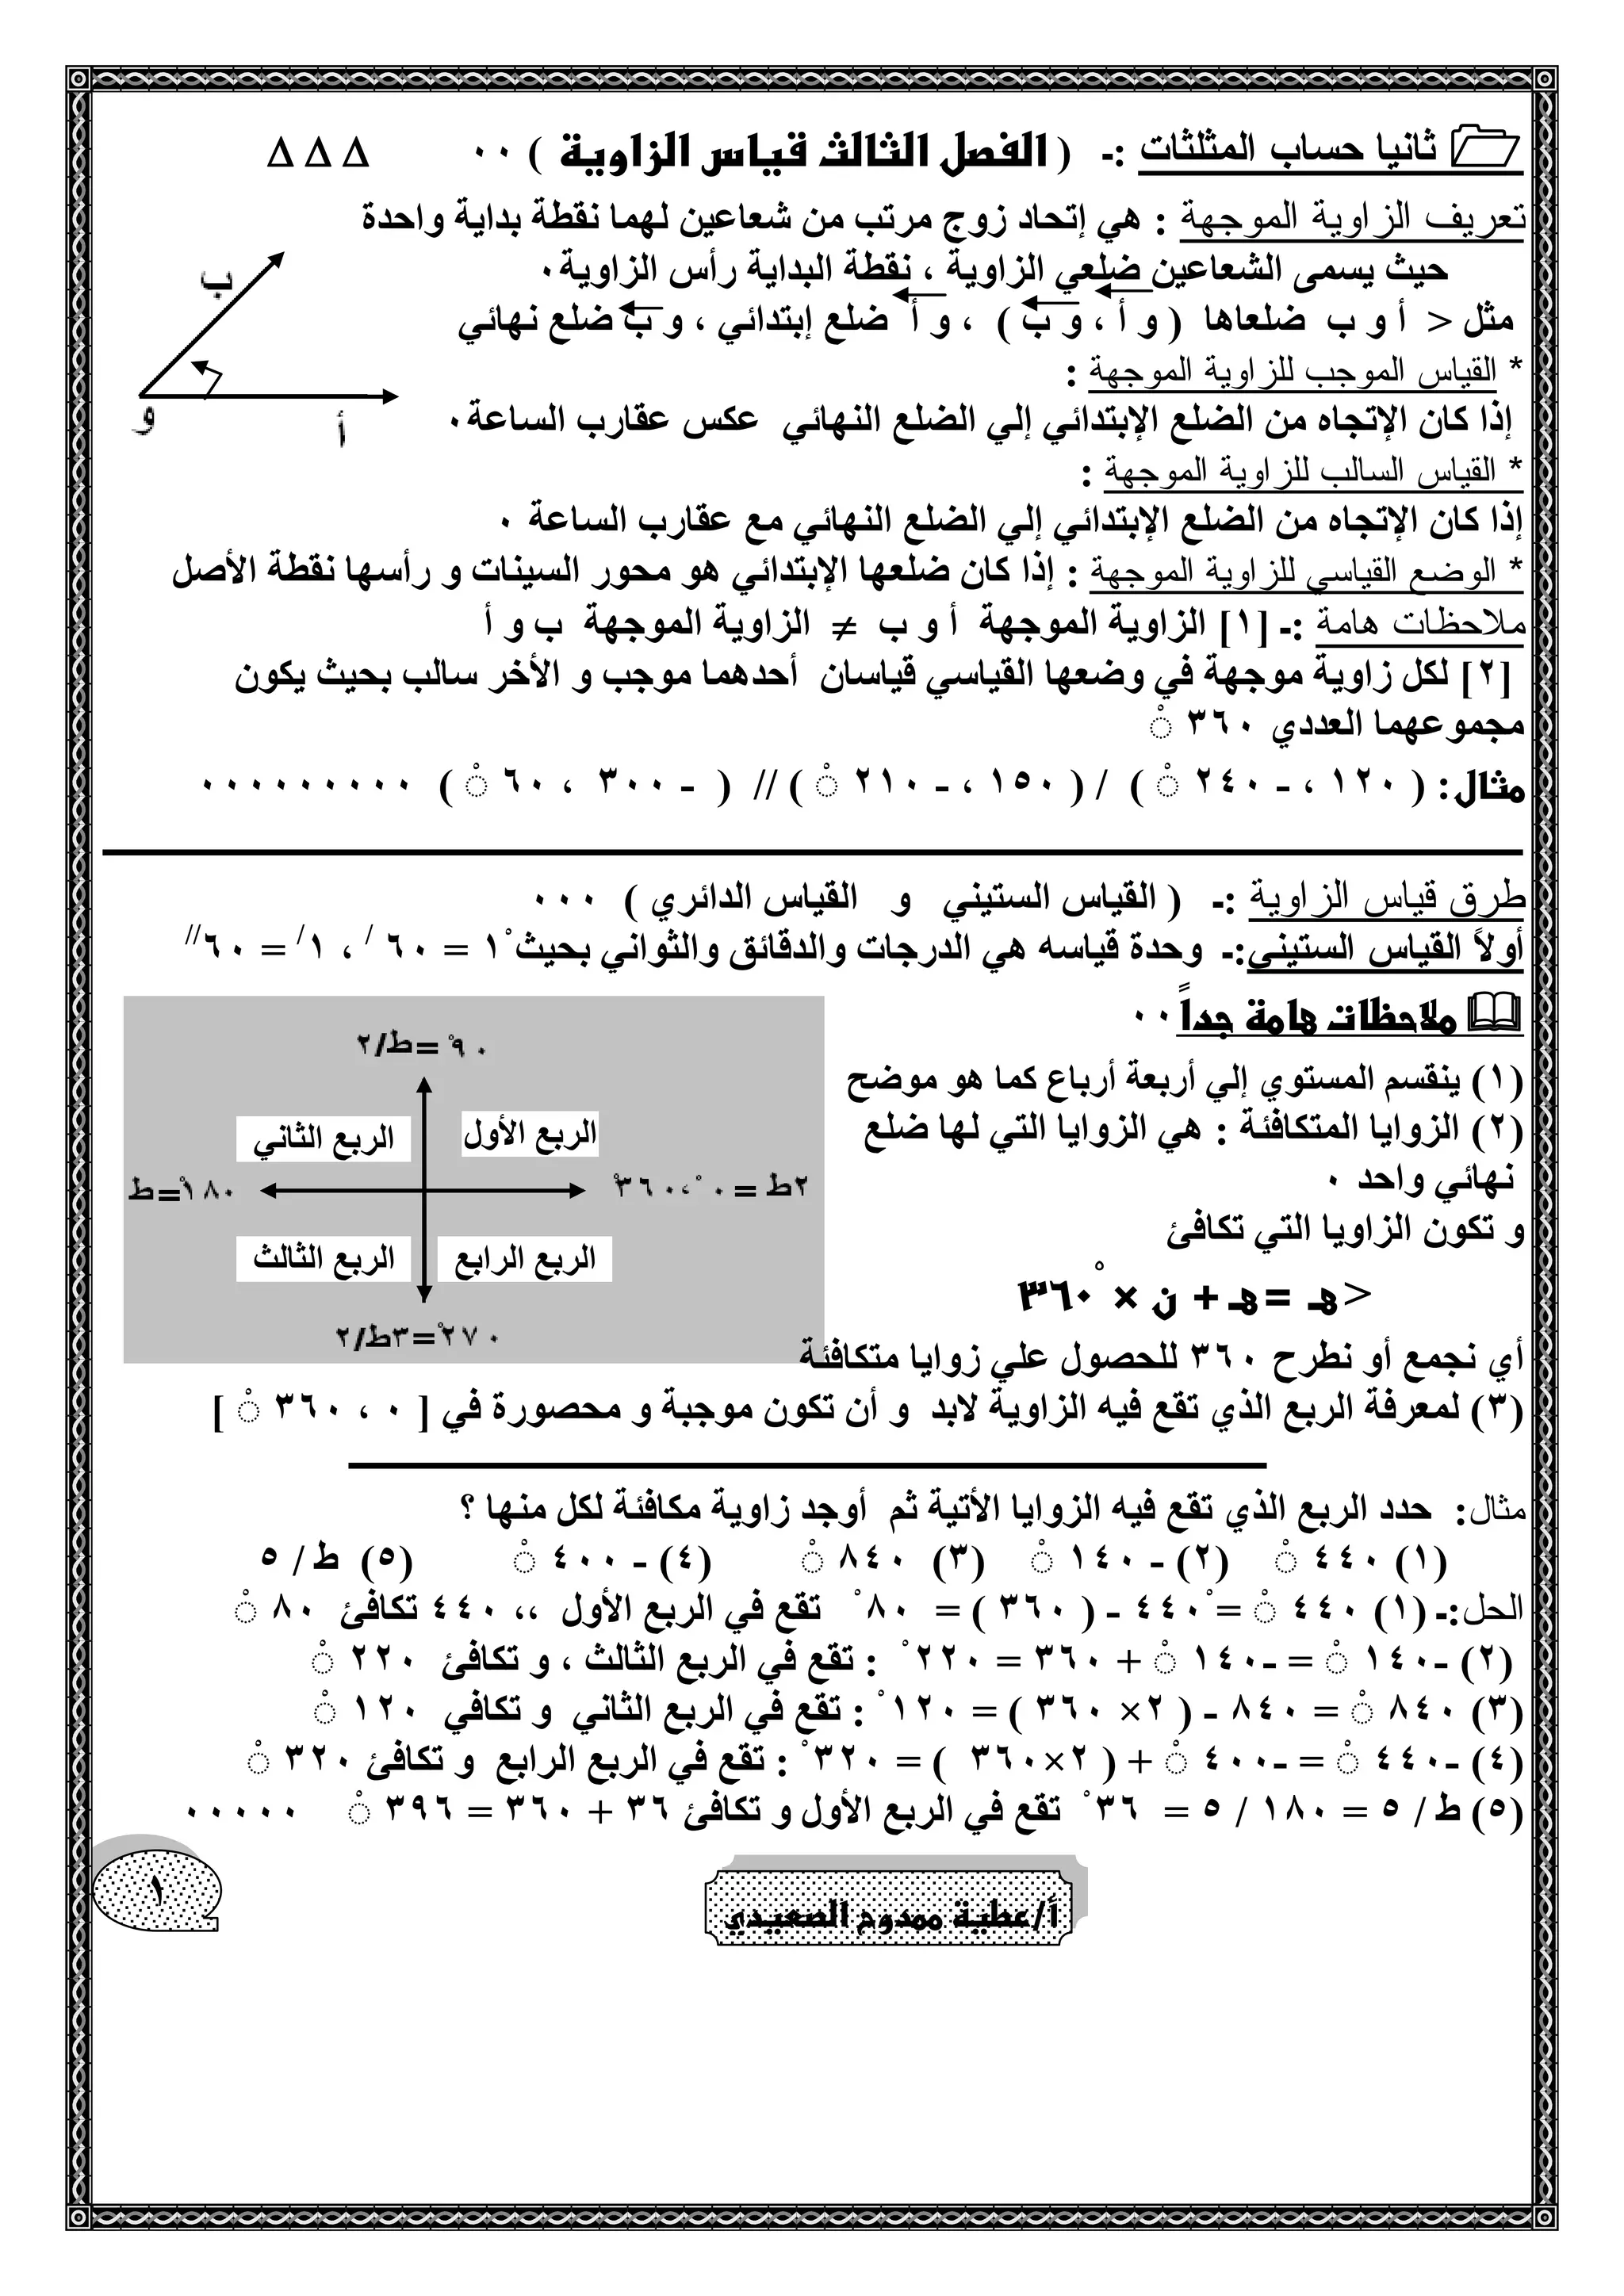 ثانيا حساب المثلثات :- ( الفصل الثالث قياس الزاوية ) ٠٠ ∆ ∆ ∆
تعريف الزاوية الموجهة : هي إتحاد زوج مرتب من شعاعين لهما نقطة بداية واحدة
حيث يسمى الشعاعين ضلعي الزاوية ، نقطة البداية رأس الزاوية٠
مثل < أ و ب ضلعاها ( و أ ، و ب ) ، و أ ضلع إبتدائي ، و ب ضلع نهائي
ب
و
أ
* القياس الموجب للزاوية الموجهة :
إذا كان الإتجاه من الضلع الإبتدائي إلي الضلع النهائي عكس عقارب الساعة٠
* القياس السالب للزاوية الموجهة :
إذا كان الإتجاه من الضلع الإبتدائي إلي الضلع النهائي مع عقارب الساعة ٠
* الوضع القياسي للزاوية الموجهة : إذا كان ضلعها الإبتدائي هو محور السينات و رأسها نقطة الأصل
ملاحظات هامة :- [١] الزاوية الموجهة أ و ب ≠ الزاوية الموجهة ب و أ
[٢] لكل زاوية موجهة في وضعها القياسي قياسان أحدهما موجب و الأخر سالب بحيث يكون
مجموعهما العددي ٣٦٠ ْ
مثال: ( ١٢٠ ، - ٢٤٠ ْ ) / ( ١٥٠ ، - ٢١٠ ْ ) // ( - ٣٠٠ ، ٦٠ ْ ) ٠٠٠٠٠٠٠٠٠
طرق قياس الزاوية :- ( القياس الستيني و القياس الدائري ) ٠٠٠
أولاً القياس الستيني:- وحدة قياسه هي الدرجات والدقائق والثواني بحيث ١ْ = ٦٠ / ، ١ / = ٦٠ //
ملاحظات هامة جداً ٠٠
(١) ينقسم المستوي إلي أربعة أرباع كما هو موضح
(٢) الزوايا المتكافئة : هي الزوايا التي لها ضلع
نهائي واحد ٠
و تكون الزاويا التي تكافئ
<هـ = هـ + ن × ٣٦٠ْ
أي نجمع أو نطرح ٣٦٠ للحصول علي زوايا متكافئة
٩٠ْ =ط/٢
الربع الأول
الربع الثاني
٢ط = ٠ْ ،٣٦٠ْ
١٨٠ْ=ط
الربع الرابع
الربع الثالث
٢٧٠ْ=٣ط/٢
(٣) لمعرفة الربع الذي تقع فيه الزاوية لابد و أن تكون موجبة و محصورة في [ ٠ ، ٣٦٠ ْ ]
مثال: حدد الربع الذي تقع فيه الزوايا الأتية ثم أوجد زاوية مكافئة لكل منها ؟
(١) ٤٤٠ ْ (٢) - ١٤٠ ْ (٣) ٨٤٠ ْ (٤) - ٤٠٠ ْ (٥) ط / ٥
الحل:- (١) ٤٤٠ ْ = ٤٤٠ْ - ( ٣٦٠ ) = ٨٠ ْ تقع في الربع الأول ،، ٤٤٠ تكافئ ٨٠ ْ
(٢) -١٤٠ ْ = -١٤٠ ْ + ٣٦٠ = ٢٢٠ ْ : تقع في الربع الثالث ، و تكافئ ٢٢٠ ْ
(٣) ٨٤٠ ْ = ٨٤٠ - ( ٢× ٣٦٠ ) = ١٢٠ ْ : تقع في الربع الثاني و تكافي ١٢٠ ْ
(٤) -٤٤٠ ْ = -٤٠٠ ْ + ( ٢×٣٦٠ ) = ٣٢٠ ْ : تقع في الربع الرابع و تكافئ ٣٢٠ ْ
(٥) ط / ٥ = ١٨٠ / ٥ = ٣٦ ْ تقع في الربع الأول و تكافئ ٣٦ + ٣٦٠ = ٣٩٦ ْ ٠٠٠٠٠
أ/عطية ممدوح الصعيدي
١